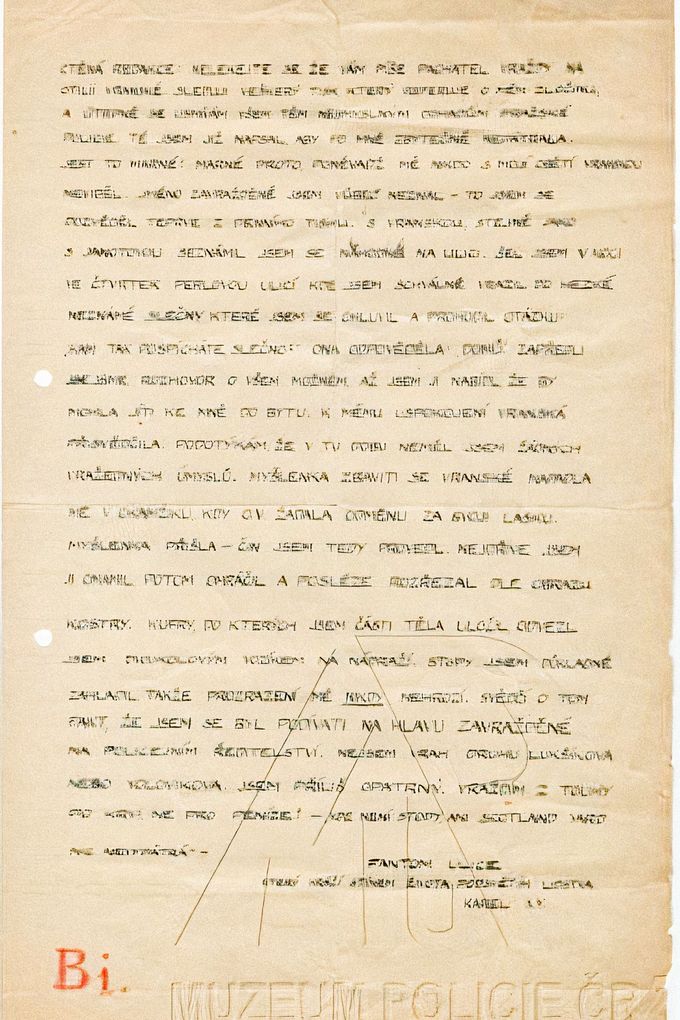 CTĚNÁ REDAKCE! NELEKEJTE SE ŽE VÁM PÍŠE PACHATEL VRAŽDY NA
OTILII VRANSKÉ. SLEDUJI VEŠKERÝ TISK KTERÝ REFERUJE O MÉM ZLOČINU,
A ÚTRPNĚ SE USMÍVÁM VŠEM TĚM
POLICIE. TÉ JSEM JIŽ NAPSAL, ABY PO MNĚ ZBYTEČNĚ NEPÁTRALA.
JEST TO MARNÉ! MARNÉ PROTO, PONĚVADŽ MĚ NIKDO S MOJÍ OBĚTÍ VRANSKOU
NEVIDĚL. JMÉNO ZAVRAŽDĚNÉ JSEM VŮBEC NEZNAL - TO JSEM SE
DOZVĚDĚL TEPRVE Z DENNÍHO TISKU. S VRANSKOU, STEJNĚ JAKO
S JANOTOVOU SEZNÁMIL JSEM SE NÁHODNĚ NA ULICI. ŠEL JSEM V NOCI
VE ČTVRTEK PERLOVOU ULICÍ KDE JSEM SCHVÁLNĚ VRAZIL DO HEZKÉ
NEZNÁMÉ SLEČNY KTERÉ JSEM SE OMLUVIL A PROHODIL OTÁZKU:
"KAM TAK POSPÍCHÁTE SLEČNO?" ONA ODPOVĚDĚLA: "DOMŮ". ZAPŘEDLI
ROZHOVOR O VŠEM MOŽNÉM, AŽ JSEM JÍ NABÍDL ŽE BY
MOHLA JÍTI KE MNĚ DO BYTU. K MÉMU USPOKOJENÍ VRANSKÁ
PŘISVĚDČILA. PODOTÝKÁM, ŽE V TU DOBU NEMĚL JSEM ŽÁDNÝCH
VRAŽEDNÝCH ÚMYSLŮ. MYŠLENKA ZBAVITI SE VRANSKÉ NAPADLA
MĚ V OKAMŽIKU, KDY O.V. ŽÁDALA ODMĚNU ZA SVOJI LÁSKU.
MYŠLENKA PŘIŠLA - ČIN JSEM TEDY PROVEDL. NEJDŘÍVE JSEM
JI OMÁMIL POTOM OMRÁČIL A POSLÉZE ROZŘEZAL DLE OBRAZU
KOSTRY. KUFRY, DO KTERÝCH JSEM ČÁSTI TĚLA ULOŽIL ODVEZL
JSEM DVOUKOLOVÝM VOZÍKEM NA NÁDRAŽÍ. STOPY JSEM DŮKLADNĚ
ZAHLADIL, TAKŽE PROZRAZENÍ MĚ NIKDY NEHROZÍ. SVĚDČÍ O TOM
FAKT, ŽE JSEM SE BYL PODÍVATI NA HLAVU ZAVRAŽDĚNÉ
NA POLICEJNÍM ŘEDITELSTVÍ. NEJSEM VRAH DRUHU LUKŠÍKOVA
NEBO VOLOVÍKOVA. JSEM PŘÍLIŠ OPATRNÝ. VRAŽDÍM Z TOUHY
PO KRVI, NE PRO PENÍZE! - STOPY ANI SCOTLAND YARD
NEVYPÁTRÁ -
FANTOM ULICE
ŽIVOTA LIDSTVA
KAREL
Bi.
MUZEUM POLICIE ČR